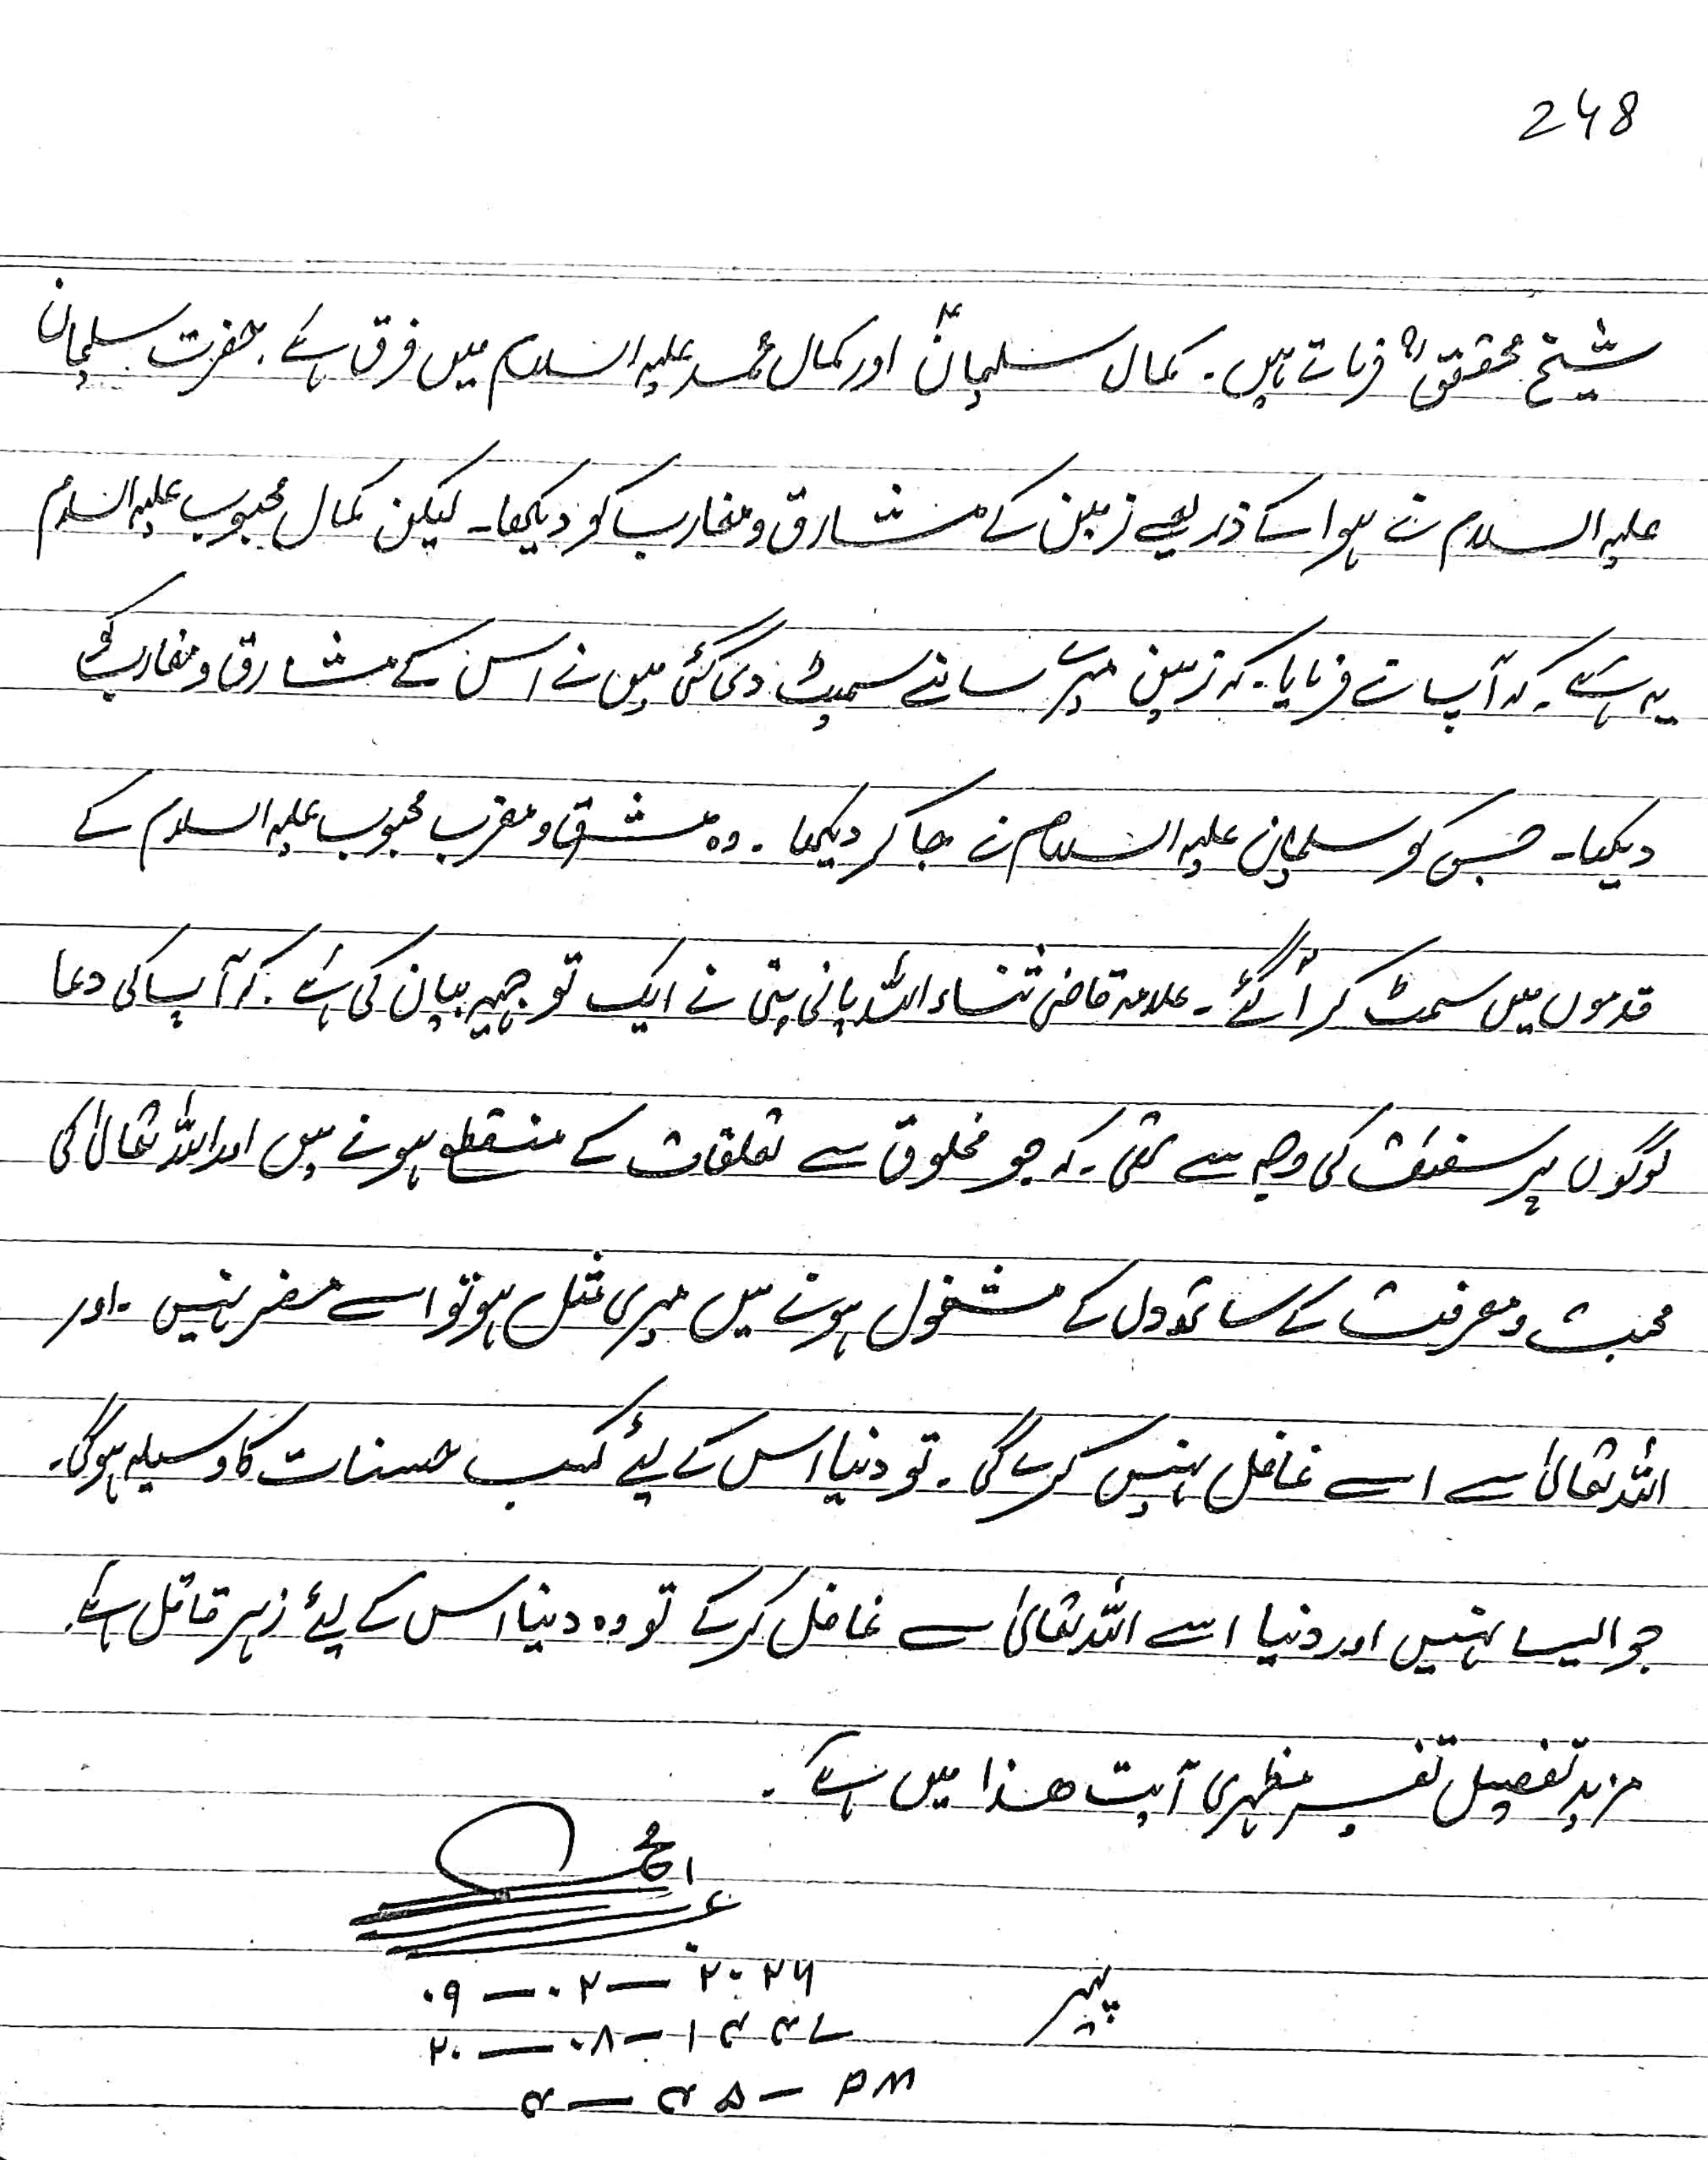 248
شیخ محقق ؒ فرماتے ہیں۔ کمال سلیمانؑ اور کمال محمد علیہ السلام میں فرق ہے۔ حضرت سلیمان
علیہ السلام نے ہوا کے ذریعے زمین کے مشارق و مغارب کو دیکھا۔ لیکن کمال محبوب علیہ السلام
یہ ہے۔ کہ آپ نے فرمایا۔ کہ زمین میرے سامنے سمیٹ دی گئی میں نے اس کے مشارق و مغارب کو
دیکھا۔ جس کو سلیمان علیہ السلام نے جا کر دیکھا۔ وہ مشرق و مغرب محبوب علیہ السلام کے
قدموں میں سمٹ کر آ گئے۔ علامہ قاضی ثناء اللہ پانی پتی نے ایک توجیہہ بیان کی ہے۔ کہ آپ کی دعا
لوگوں پر شفقت کی وجہ سے تھی۔ کہ جو مخلوق سے تعلقات کے منقطع ہونے میں اور اللہ تعالیٰ کی
محبت و معرفت کے ساتھ دل کے مشغول ہونے میں میری مثل ہو تو اسے مضر نہیں۔ اور
اللہ تعالیٰ سے اسے غافل نہیں کرے گی۔ تو دنیا اس کے لیے کسب حسنات کا وسیلہ ہو گی۔
جو ایسا نہیں اور دنیا اسے اللہ تعالیٰ سے غافل کر کے تو وہ دنیا اس کے لیے زہر قاتل ہے۔
مزید تفصیل تفسیر مظہری آیت ھذا میں ہے۔
پیر
۰۹ — ۰۲ — ۲۰۲۶
۲۰ — ۰۸ — ۱۴۴۷
۴ — ۴۵ — PM